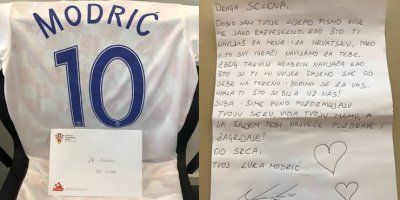 MODRIĆ
10
ZA SELENU
OD LUKE
DRAGA SELENA,
DOBIO SAM TVOJE LIJEPO PISMO KOJE
ME JAKO RAZVESELILO. KAO ŠTO TI
NAVIJAŠ ZA MENE I ZA HRVATSKU, TAKO
I MI SVI IGRAČI NAVIJAMO ZA TEBE.
ZBOG TAKVIH HRABRIH NAVIJAČA KAO
ŠTO SI TI MI UVIJEK DAJEMO SVE OD
SEBE NA TERENU I BORIMO SE ZA VAS.
HVALA TI ŠTO SI BILA UZ NAS!
I SIME PUNO POZDRAVLJAJU
TVOJU SEKU, VIDA TVOJU MAMU, A
JA ŠALJEM TEBI NAJVEĆE POZDRAVE I
ZAGRLJAJE!
OD SRCA,
TVOJ LUKA MODRIĆ